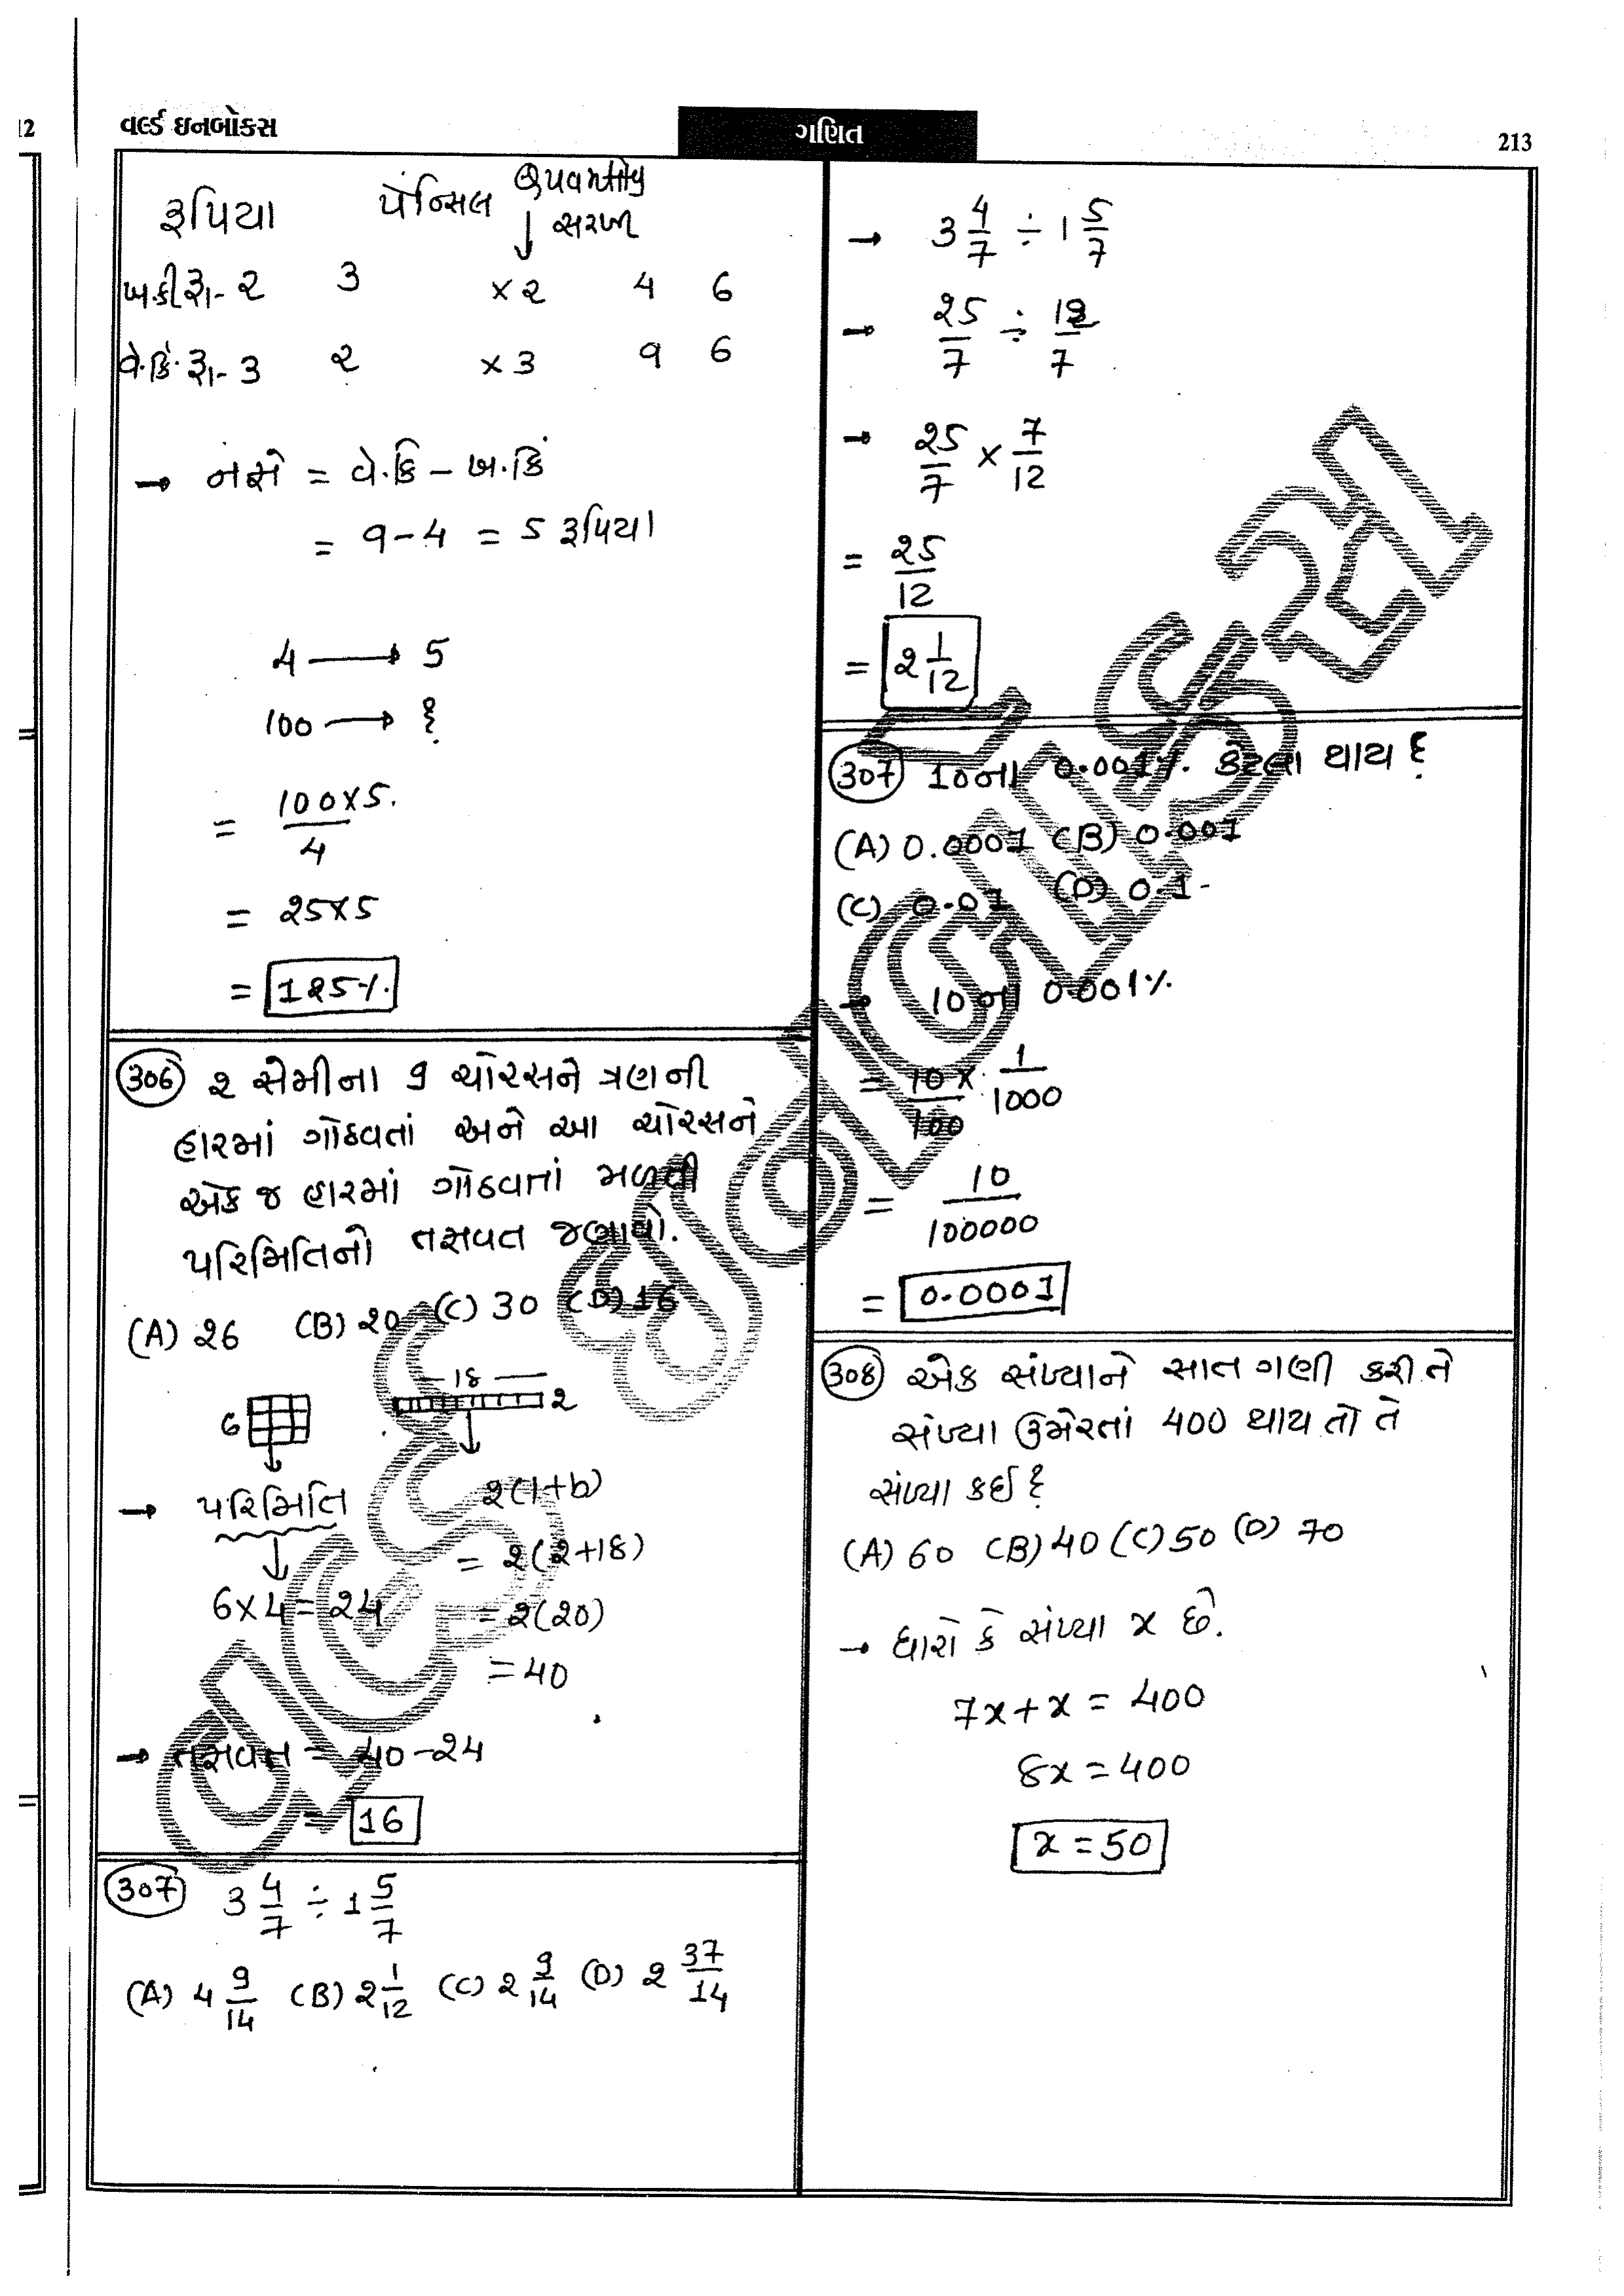 12
વર્લ્ડ ઇનબોક્સ
ગણિત
213
રૂપિયા પેન્સિલ
↓ સરખી
ખ.કીં રૂા- ૨ 3 × ૨ 4 6
વે.કિં. રૂા- 3 ૨ × 3 9 6
→ નફો = વે.કિં – ખ.કિં
= 9 – 4 = 5 રૂપિયા
4 → 5
100 → ?
= 100 × 5 / 4
= ૨5 × 5
= 1૨5%
306 ૨ સેમીના 9 ચોરસને ત્રણની
હારમાં ગોઠવતાં અને આ ચોરસને
એક જ હારમાં ગોઠવતાં મળતી
પરિમિતિનો તફાવત જણાવો.
(A) ૨6 (B) ૨0 (C) 30 (D) 16
6 18 ૨
→ પરિમિતિ 2(l+b)
= ૨(૨+18)
6×4 = ૨4 = ૨(૨0)
= 40
→ તફાવત = 40 – ૨4
= 16
307 3 4/7 ÷ 1 5/7
(A) 4 9/14 (B) ૨ 1/12 (C) ૨ 9/14 (D) ૨ 37/14
→ 3 4/7 ÷ 1 5/7
→ ૨5/7 ÷ 12/7
→ ૨5/7 × 7/12
= ૨5/12
= ૨ 1/12
307 10ના 0.001% કેટલા થાય ?
(A) 0.0001 (B) 0.001
(C) 0.01 (D) 0.1
→ 10 ના 0.001%
= 10/100 × 1/1000
= 10/100000
= 0.0001
308 એક સંખ્યાને સાત ગણી કરી તે
સંખ્યા ઉમેરતાં 400 થાય તો તે
સંખ્યા કઈ ?
(A) 60 (B) 40 (C) 50 (D) 70
→ ધારો કે સંખ્યા x છે.
7x + x = 400
8x = 400
x = 50